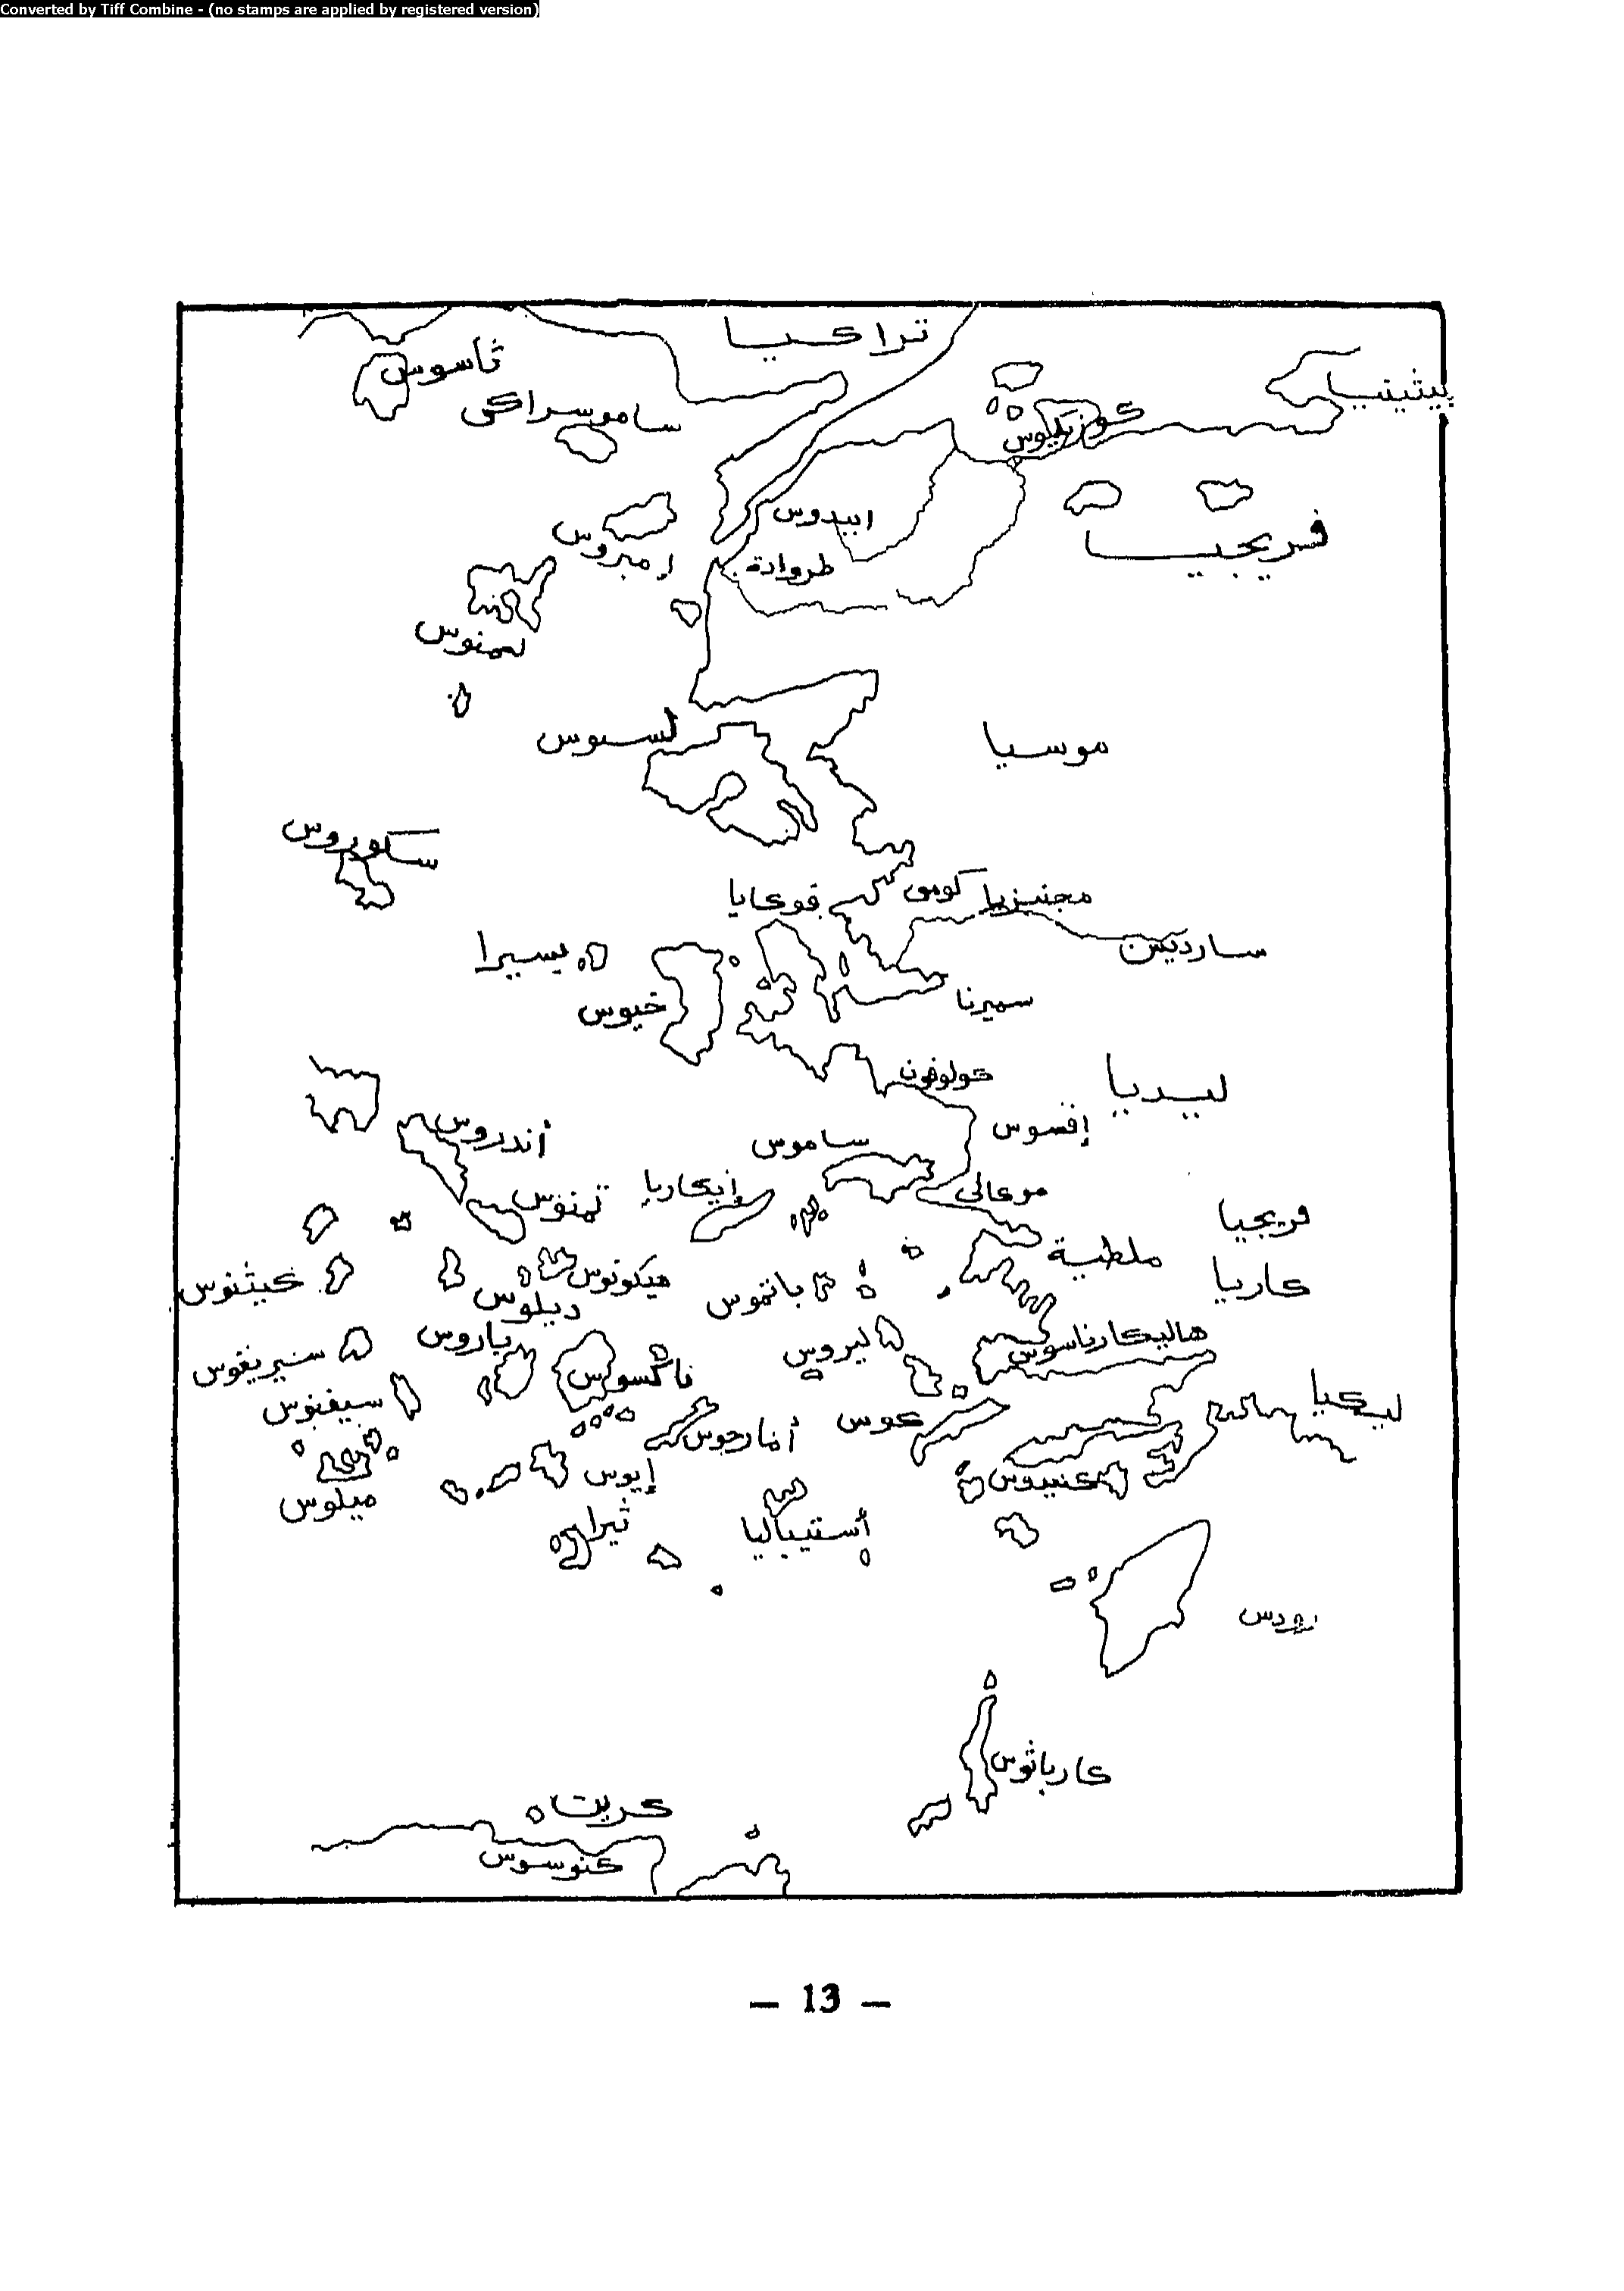 Converted by Tiff Combine - (no stamps are applied by registered version)
تراكيا
ثاسوس
ساموسراكى
بيثينيا
كوزيكوس
ابيدوس
فريجيا
إمبروس
طروادة
لمنوس
لسبوس
موسيا
سكوروس
فوكايا
كومى
مجنيزيا
سارديس
بسيرا
خيوس
سميرنا
كولوفون
ليديا
إفسوس
أندروس
ساموس
تمنوس
إيكاريا
موكالى
فريجيا
ملطية
كاريا
كيثنوس
ميكونوس
ديلوس
باتموس
ياروس
ليروس
هاليكارناسوس
سيريفوس
ناكسوس
سيفنوس
ليكيا
كوس
أمارجوس
إيوس
كنيدوس
ميلوس
ثيرا
أستيباليا
رودس
كارباثوس
كريت
كنوسوس
– 13 –